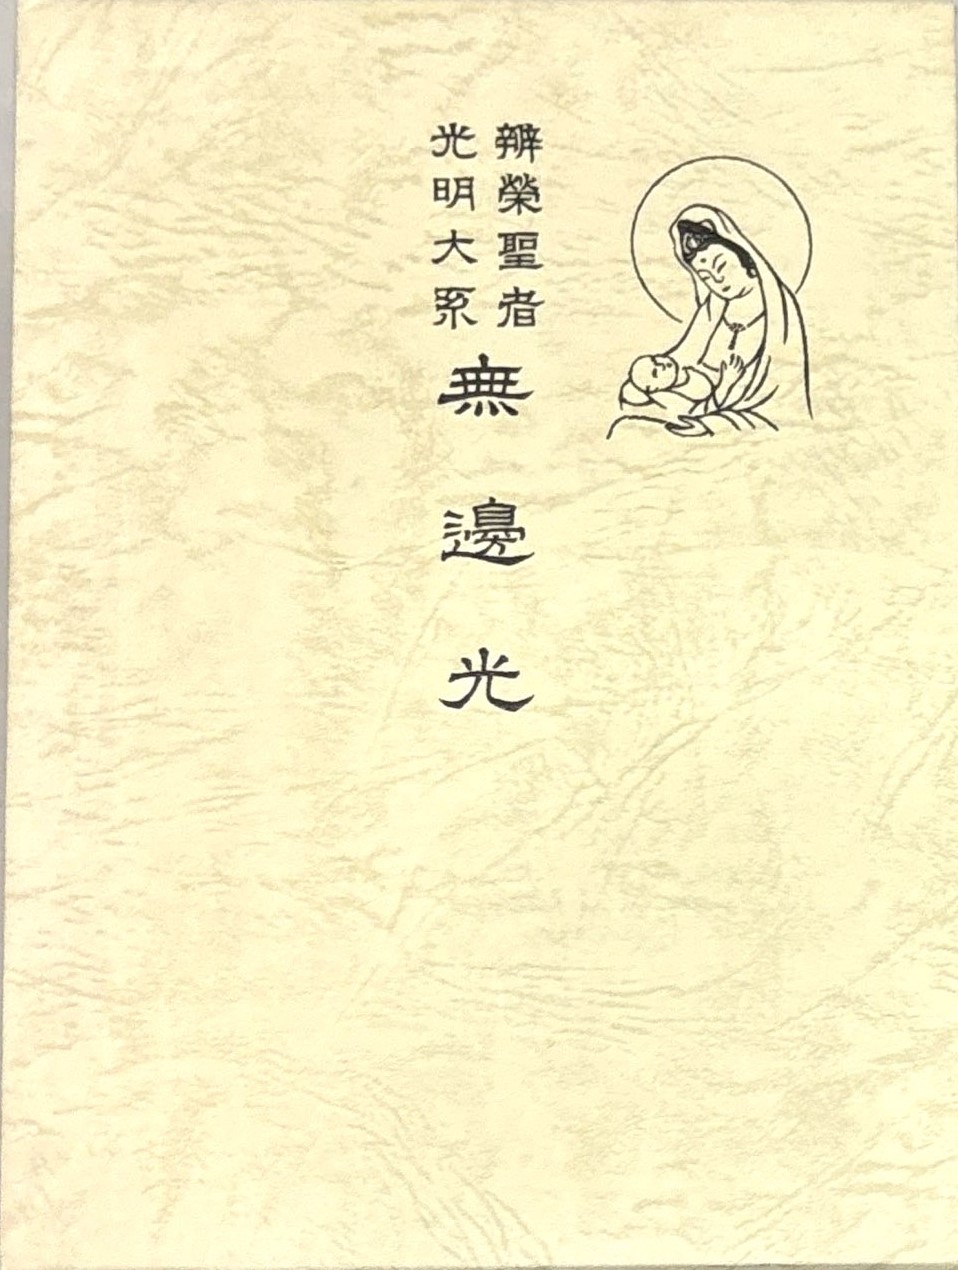 辨榮聖者
光明大系
無邊光